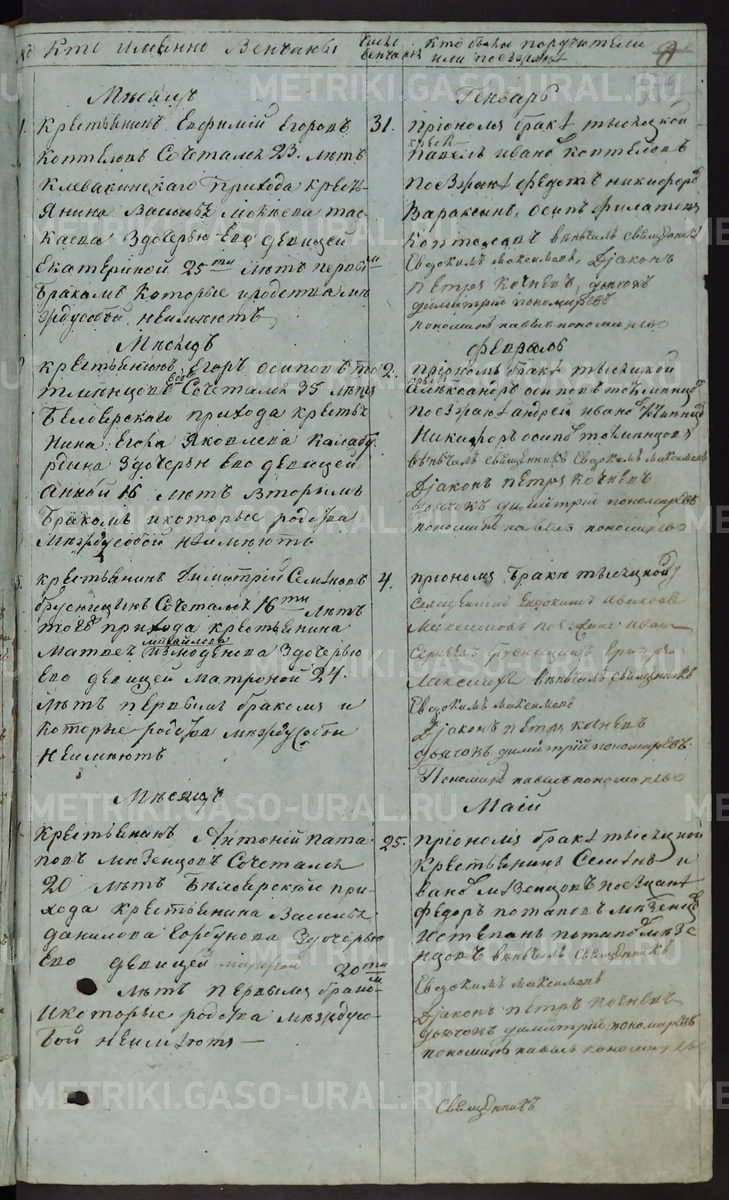 № Кто именно Венчаны
число венчания
Кто были поручители
или поезжане
8
Месяцъ
Генварь
1. Крестьянинъ Евфимий Егоровъ
Коптеловъ Сочетался 23. летъ
Клевакинскаго Прихода кресть-
янина Василья Мокиева тас-
каева Здочерью Ево девицей
Екатериной 25ти летъ первымъ
бракомъ Которые иродства ме
ждусобой неимеютъ
31.
приономъ бракѣ тысецкой
крест.
павелъ иванов коптеловъ
поезжанѣ федотъ никифоровъ
Вараксинъ, осипъ филатовъ
Коптеловъ венчалъ священникъ
Евдокимъ Максимовъ, Дьяконъ
петръ кочневъ, дьячокъ
димитрий пономаревъ
пономарь павелъ пономаревъ
Месяцъ
февраль
крестьянинъ Егоръ осиповъ то
Сочетался 35 летъ
Белоярского прихода кресть
нина Егора Яковлева Калабу
рдина Здочерью Ево девицей
Анной 16 летъ вторымъ
Бракомъ икоторые родства
междусобой неимеютъ
2.
приономъ бракѣ тысяцкой
Александръ осиповъ
поезжанѣ андрей иванов
Никифоръ осипов
венчалъ священникъ Евдокимъ Максимовъ
Дьяконъ петръ кочневъ
дьячокъ димитрий пономаревъ
пономарь павелъ пономаревъ
3. крестьянинъ Димитрий Семеновъ
брусницынъ Сочетался 16ти летъ
тоевъ прихода крестьянина
михайлова
Матвея Здочерью
Ево девицей матроной 24.
летъ первымъ бракомъ и
которые родства междусобой
неимеютъ
4.
приономъ бракѣ тысяцкой
Священникъ Евдокимъ
Максимовъ поезжане иванъ
Сергеевъ
венчалъ священникъ
Евдокимъ Максимовъ
Дьяконъ петръ кочневъ
дьячокъ димитрий пономаревъ.
Пономарь павелъ пономаревъ
Месяцъ
Маій
Крестьянинъ Антоний пата
повъ мезенцовъ Сочетался
20 летъ Белоярского при-
хода крестьянина Василья
данилова Горбунова Здочерью
Ево девицей 20ти
летъ первымъ брако-
икоторые родства междусо-
бой неимеютъ —
25.
приономъ бракѣ тысяцкой
Крестьянинъ Семенъ и
ванов мезенцовъ поезжанѣ
федоръ потаповъ мезенцов
истепанъ потапов мезе
нцовъ венчалъ священникъ
Евдокимъ Максимовъ
Дьяконъ петръ кочневъ
дьячокъ димитрий пономаревъ
пономарь павелъ пономаревъ
священникъ
METRIKI.GASO-URAL.RU